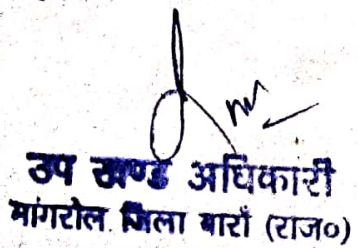 उप खण्ड अधिकारी
मांगरोल जिला बारॉं (राज०)